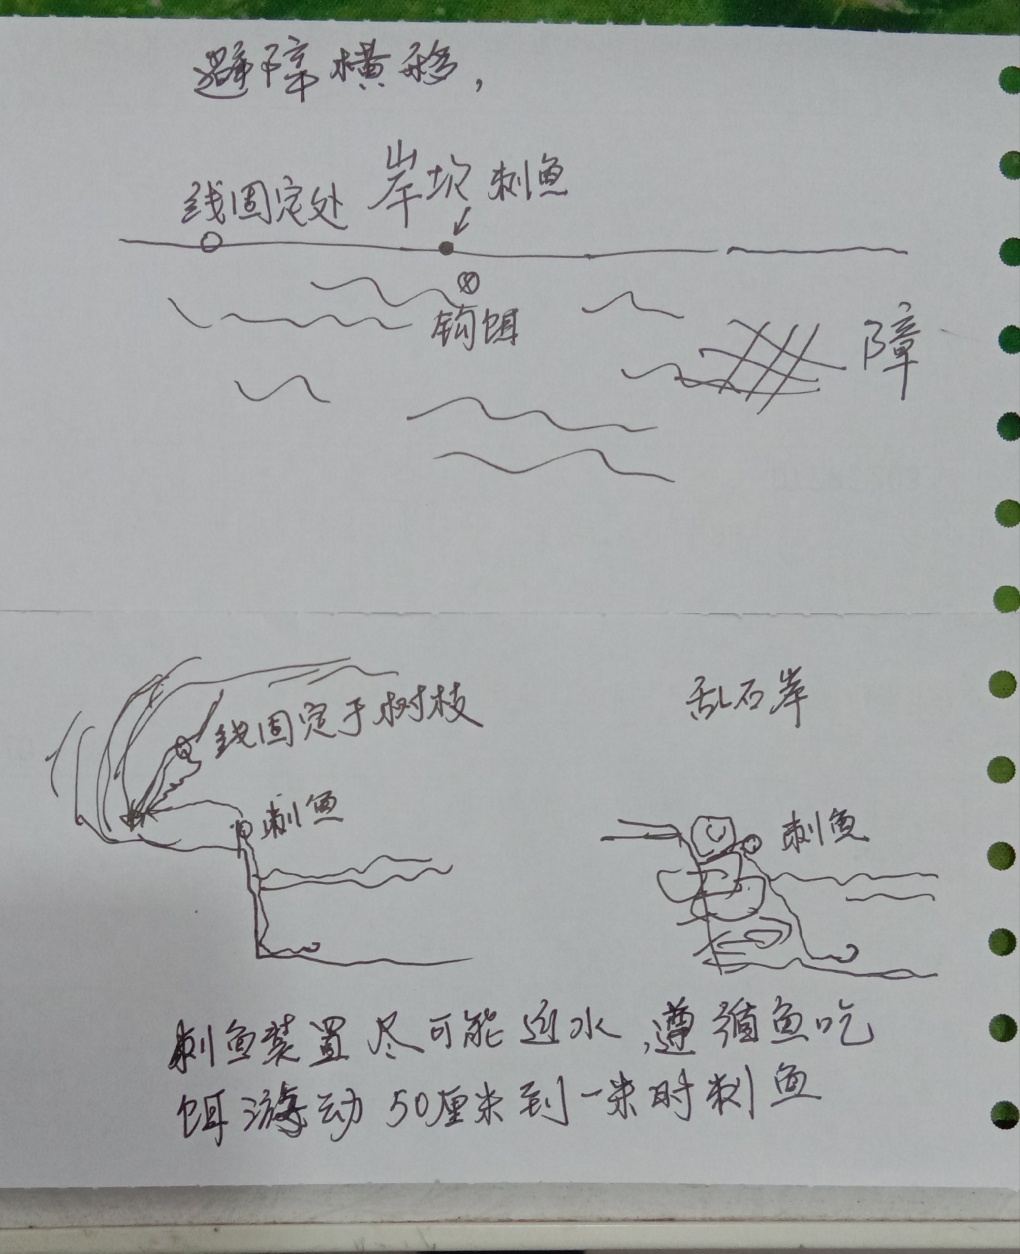 避障横移，
线固定处 岸坎 刺鱼
钩饵
障
线固定于树枝
乱石岸
刺鱼
刺鱼
刺鱼装置尽可能近水，遵循鱼吃
饵游动50厘米到一米时刺鱼